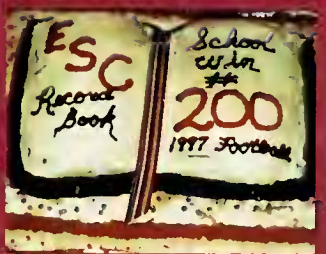 ESC
Record
Book
School
Win
#
200
1997 Football